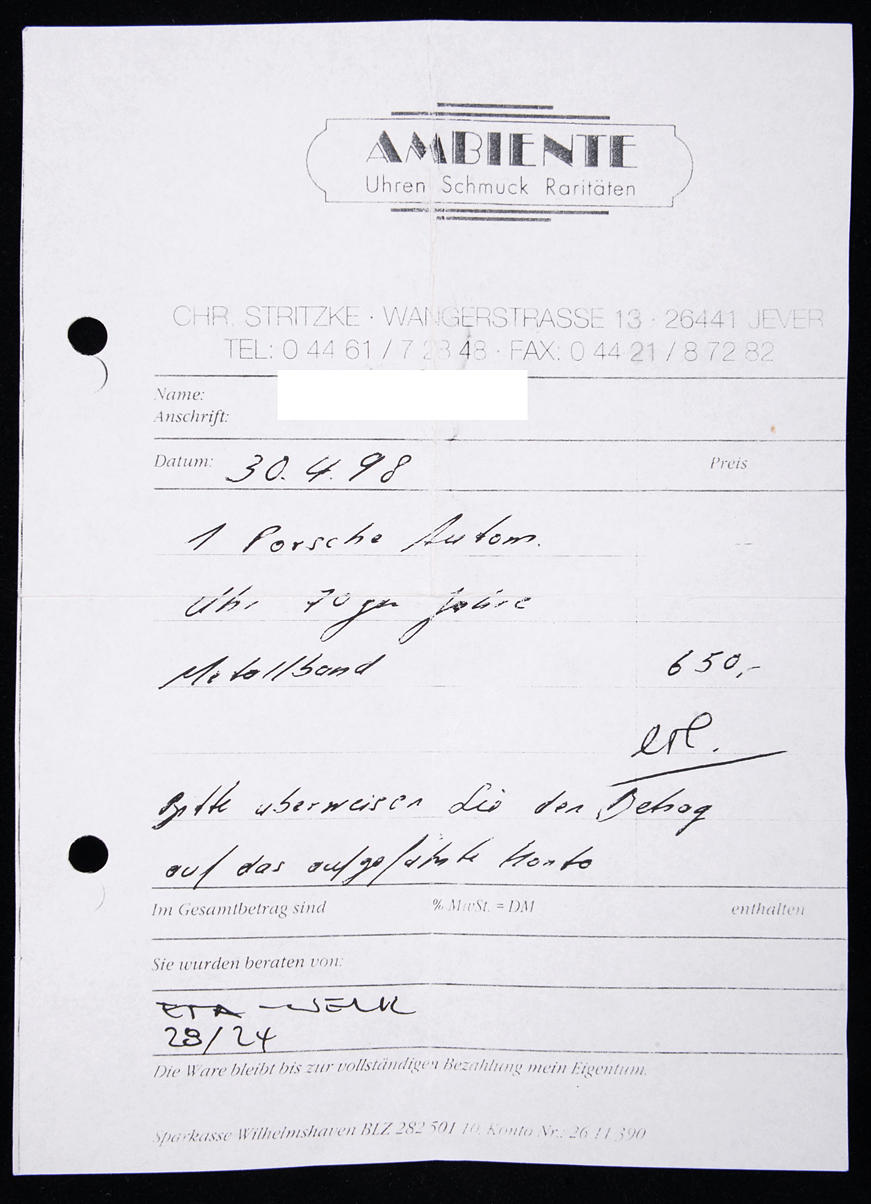 AMBIENTE
Uhren Schmuck Raritäten
CHR. STRITZKE · WANGERSTRASSE 13 · 26441 JEVER
TEL: 0 44 61 / 7 28 48 · FAX: 0 44 21 / 8 72 82
Name:
Anschrift:
Datum: 30.4.98 Preis
1 Porsche Autom.
Uhr 70ger Jahre
Metallband 650,-
erl.
Bitte überweisen Sie den Betrag
auf das aufgeführte Konto
Im Gesamtbetrag sind % MwSt. = DM enthalten
Sie wurden beraten von:
ETA -WERK
28/24
Die Ware bleibt bis zur vollständigen Bezahlung mein Eigentum.
Sparkasse Wilhelmshaven BLZ 282 501 10, Konto Nr.: 26 11 390